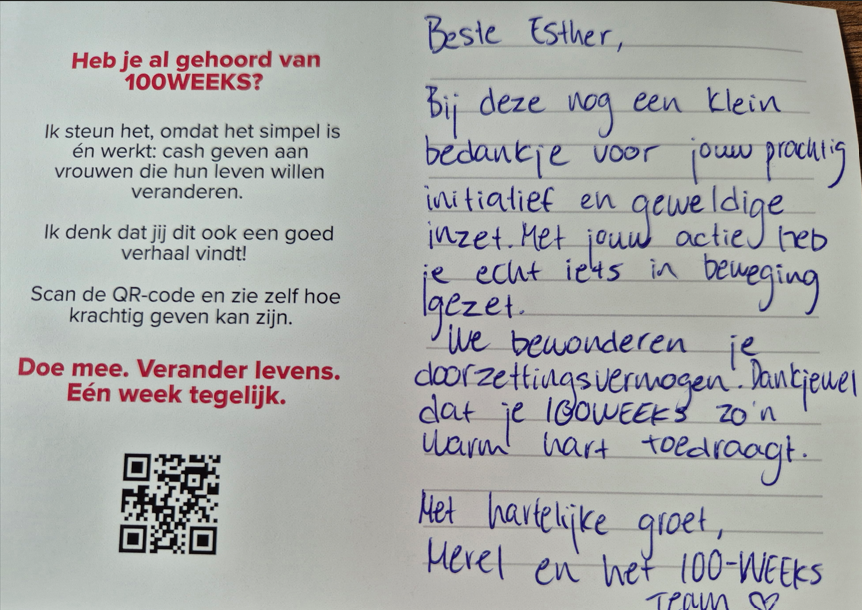 Heb je al gehoord van
100WEEKS?
Ik steun het, omdat het simpel is
én werkt: cash geven aan
vrouwen die hun leven willen
veranderen.
Ik denk dat jij dit ook een goed
verhaal vindt!
Scan de QR-code en zie zelf hoe
krachtig geven kan zijn.
Doe mee. Verander levens.
Eén week tegelijk.
Beste Esther,
Bij deze nog een klein
bedankje voor jouw prachtig
initiatief en geweldige
inzet. Met jouw actie heb
je echt iets in beweging
gezet.
We bewonderen je
doorzettingsvermogen. Dankjewel
dat je 100WEEKS zo'n
warm hart toedraagt.
Met hartelijke groet,
Merel en het 100-WEEKS
Team ♡